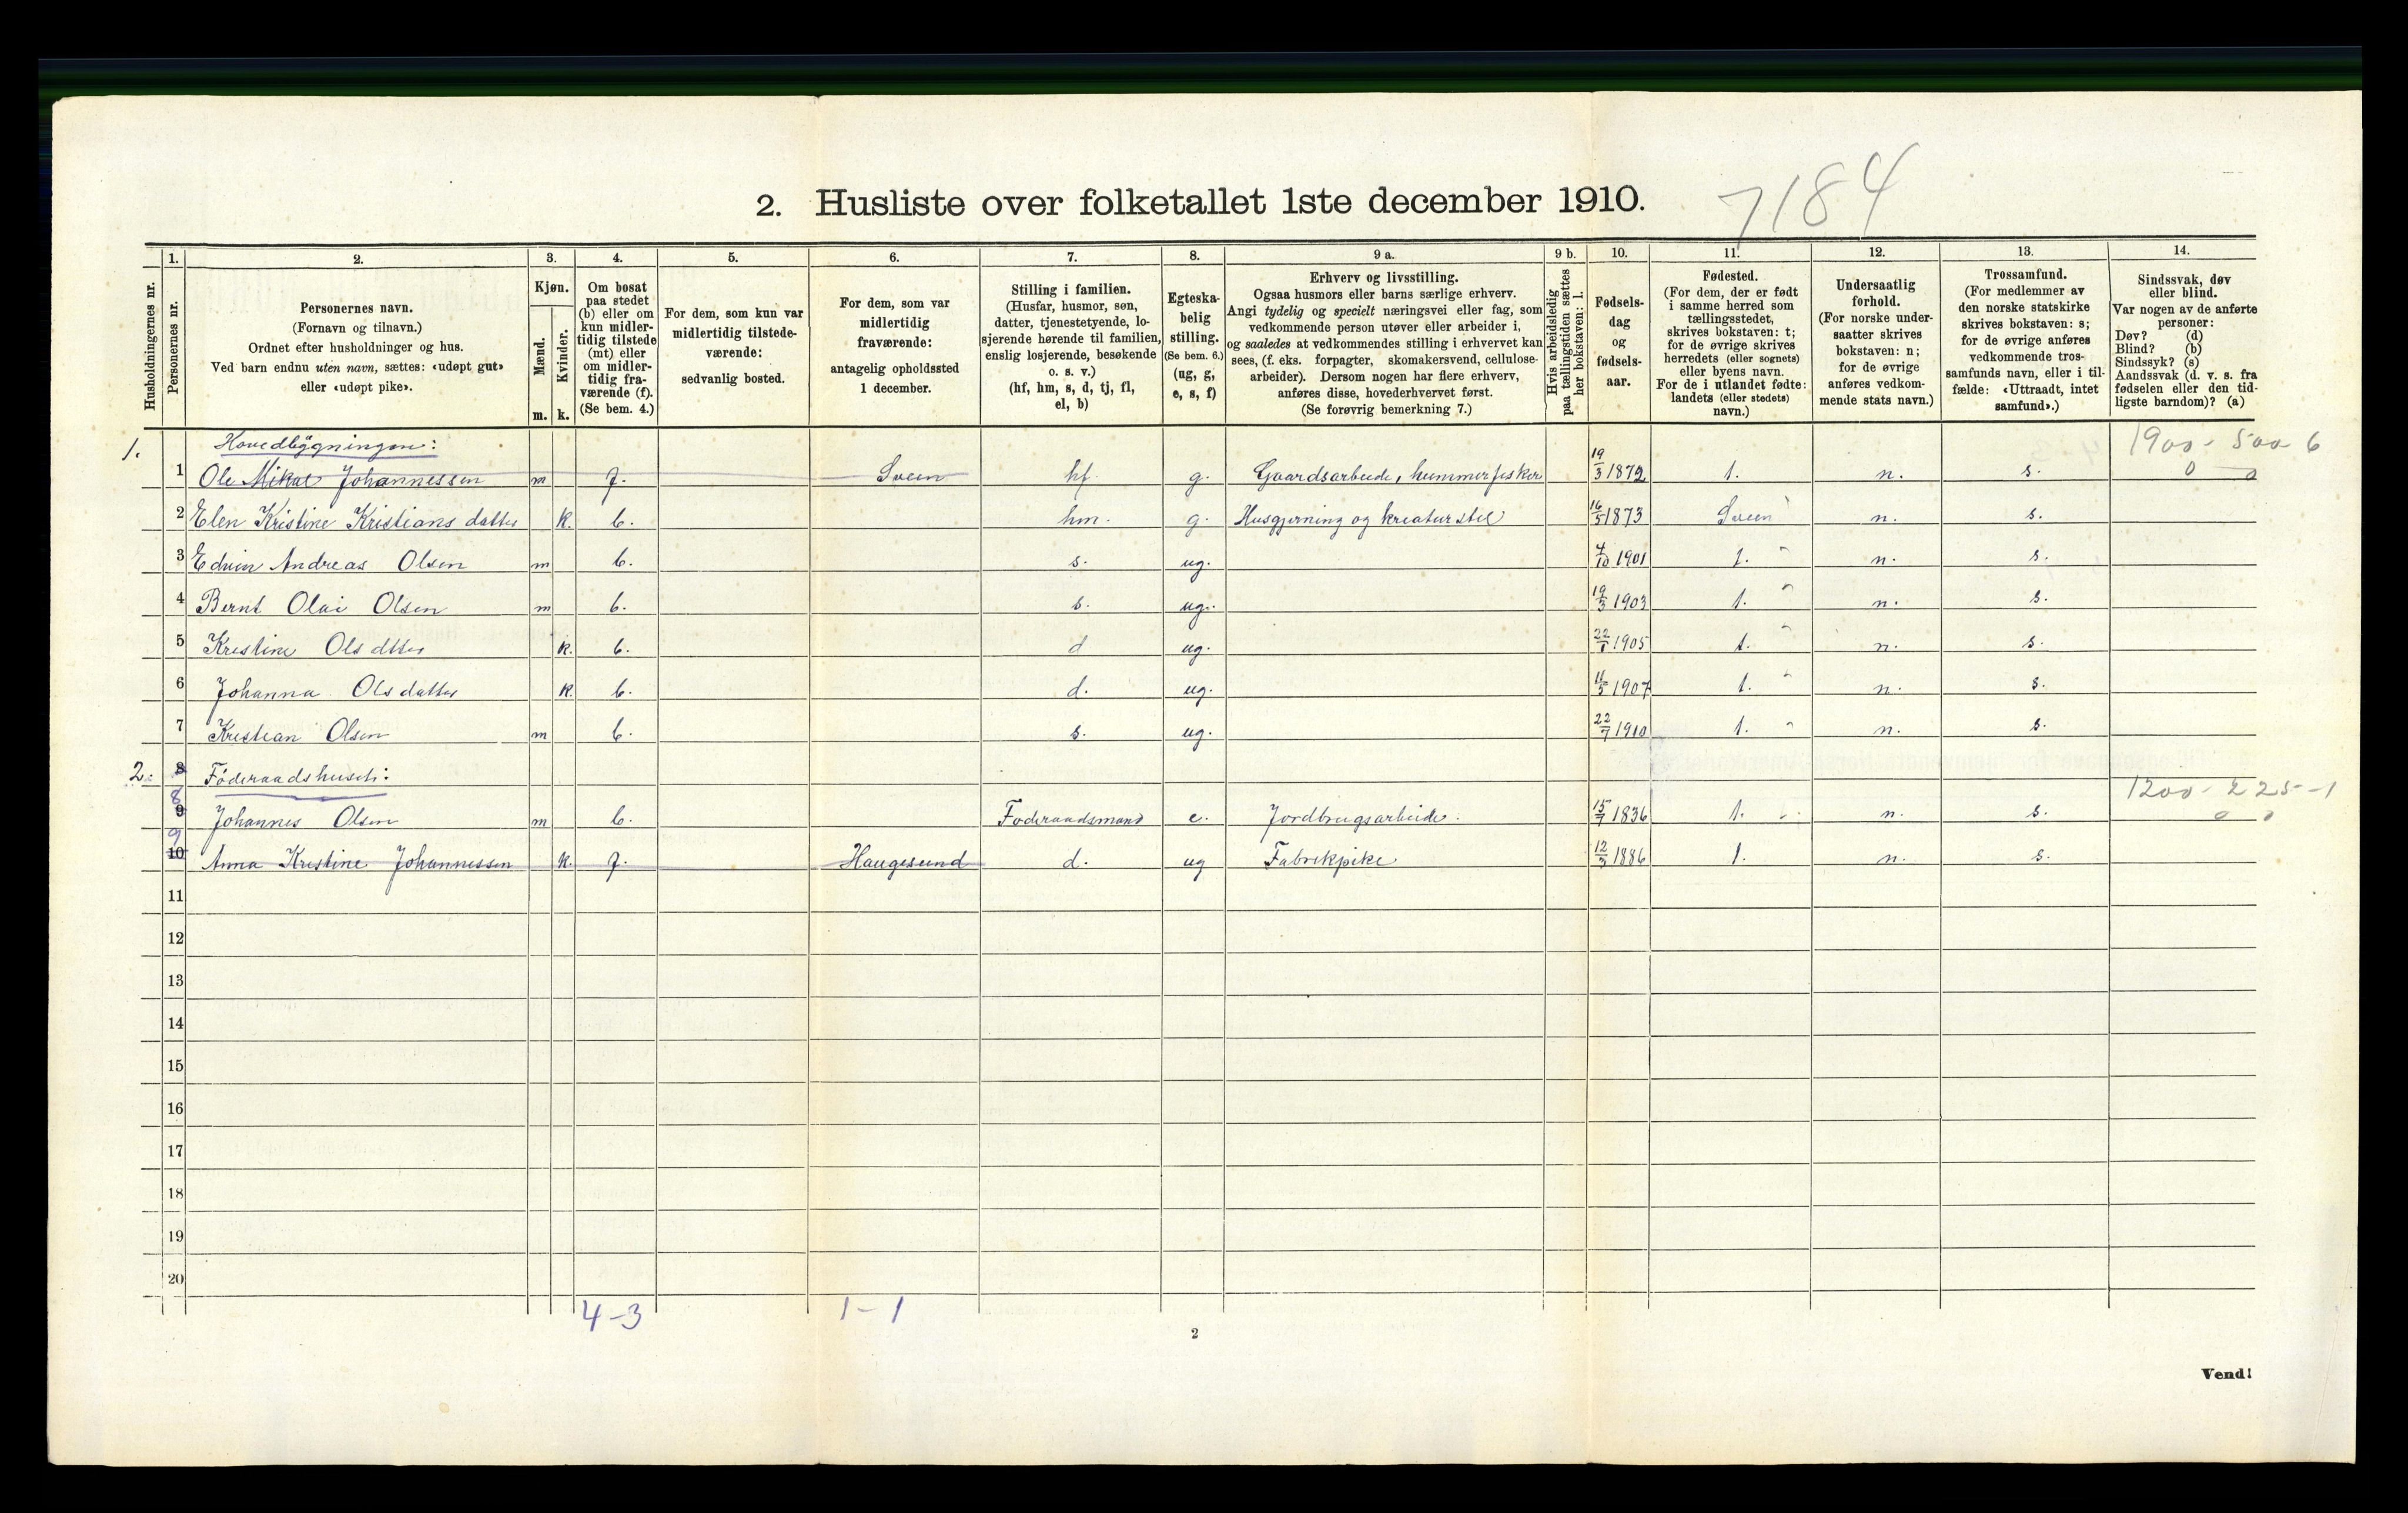 2. Husliste over folketallet 1ste december 1910. 7184
Husholdningernes nr.
1. Personernes nr.
2. Personernes navn. (Fornavn og tilnavn.) Ordnet efter husholdninger og hus. Ved barn endnu uten navn, sættes: «udøpt gut» eller «udøpt pike».
3. Kjøn. Mænd. m. Kvinder. k.
4. Om bosat paa stedet (b) eller om kun midlertidig tilstede (mt) eller om midlertidig fraværende (f). (Se bem. 4.)
5. For dem, som kun var midlertidig tilstedeværende: sedvanlig bosted.
6. For dem, som var midlertidig fraværende: antagelig opholdssted 1 december.
7. Stilling i familien. (Husfar, husmor, søn, datter, tjenestetyende, losjerende hørende til familien, enslig losjerende, besøkende o. s. v.) (hf, hm, s, d, tj, fl, el, b)
8. Egteskabelig stilling. (Se bem. 6.) (ug, g, e, s, f)
9 a. Erhverv og livsstilling. Ogsaa husmors eller barns særlige erhverv. Angi tydelig og specielt næringsvei eller fag, som vedkommende person utøver eller arbeider i, og saaledes at vedkommendes stilling i erhvervet kan sees, (f. eks. forpagter, skomakersvend, cellulosearbeider). Dersom nogen har flere erhverv, anføres disse, hovederhvervet først. (Se forøvrig bemerkning 7.)
9 b. Hvis arbeidsledig paa tællingstiden sættes her bokstaven: l.
10. Fødselsdag og fødselsaar.
11. Fødested. (For dem, der er født i samme herred som tællingsstedet, skrives bokstaven: t; for de øvrige skrives herredets (eller sognets) eller byens navn. For de i utlandet fødte: landets (eller stedets) navn.)
12. Undersaatlig forhold. (For norske undersaatter skrives bokstaven: n; for de øvrige anføres vedkommende stats navn.)
13. Trossamfund. (For medlemmer av den norske statskirke skrives bokstaven: s; for de øvrige anføres vedkommende trossamfunds navn, eller i tilfælde: «Uttraadt, intet samfund».)
14. Sindssvak, døv eller blind. Var nogen av de anførte personer: Døv? (d) Blind? (b) Sindssyk? (s) Aandssvak (d. v. s. fra fødselen eller den tidligste barndom)? (a)
1. Hovedbygningen: 1900 - 500 6
1 Ole Mikal Johannessen m f. Sveen hf. g. Gaardsarbeide, hummerfisker 19/3 1872 t. n. s. 0 0
2 Elen Kristine Kristians datter k. b. hm. g. Husgjerning og kreaturstel 16/5 1873 Sveen n. s.
3 Edvin Andreas Olsen m b. s. ug. 4/10 1901 t. n. s.
4 Bernt Olai Olsen m b. s. ug. 19/3 1903 t. n. s.
5 Kristine Olsdtter k. b. d ug. 22/1 1905 t. n. s.
6 Johanna Olsdatter k. b. d. ug. 11/5 1907 t. n. s.
7 Kristian Olsen m b. s. ug. 22/7 1910 t. n. s.
2. 8 Føderaadshuset: 1200 - 225 - 1
8 9 Johannes Olsen m b. Føderaadsmand e. Jordbrugsarbeide. 15/7 1836 t. n. s. 0 0
9 10 Anna Kristine Johannessen k. f. Haugesund d. ug Fabrikpike 12/3 1886 t. n. s.
11
12
13
14
15
16
17
18
19
20
4-3 1-1
2
Vend!